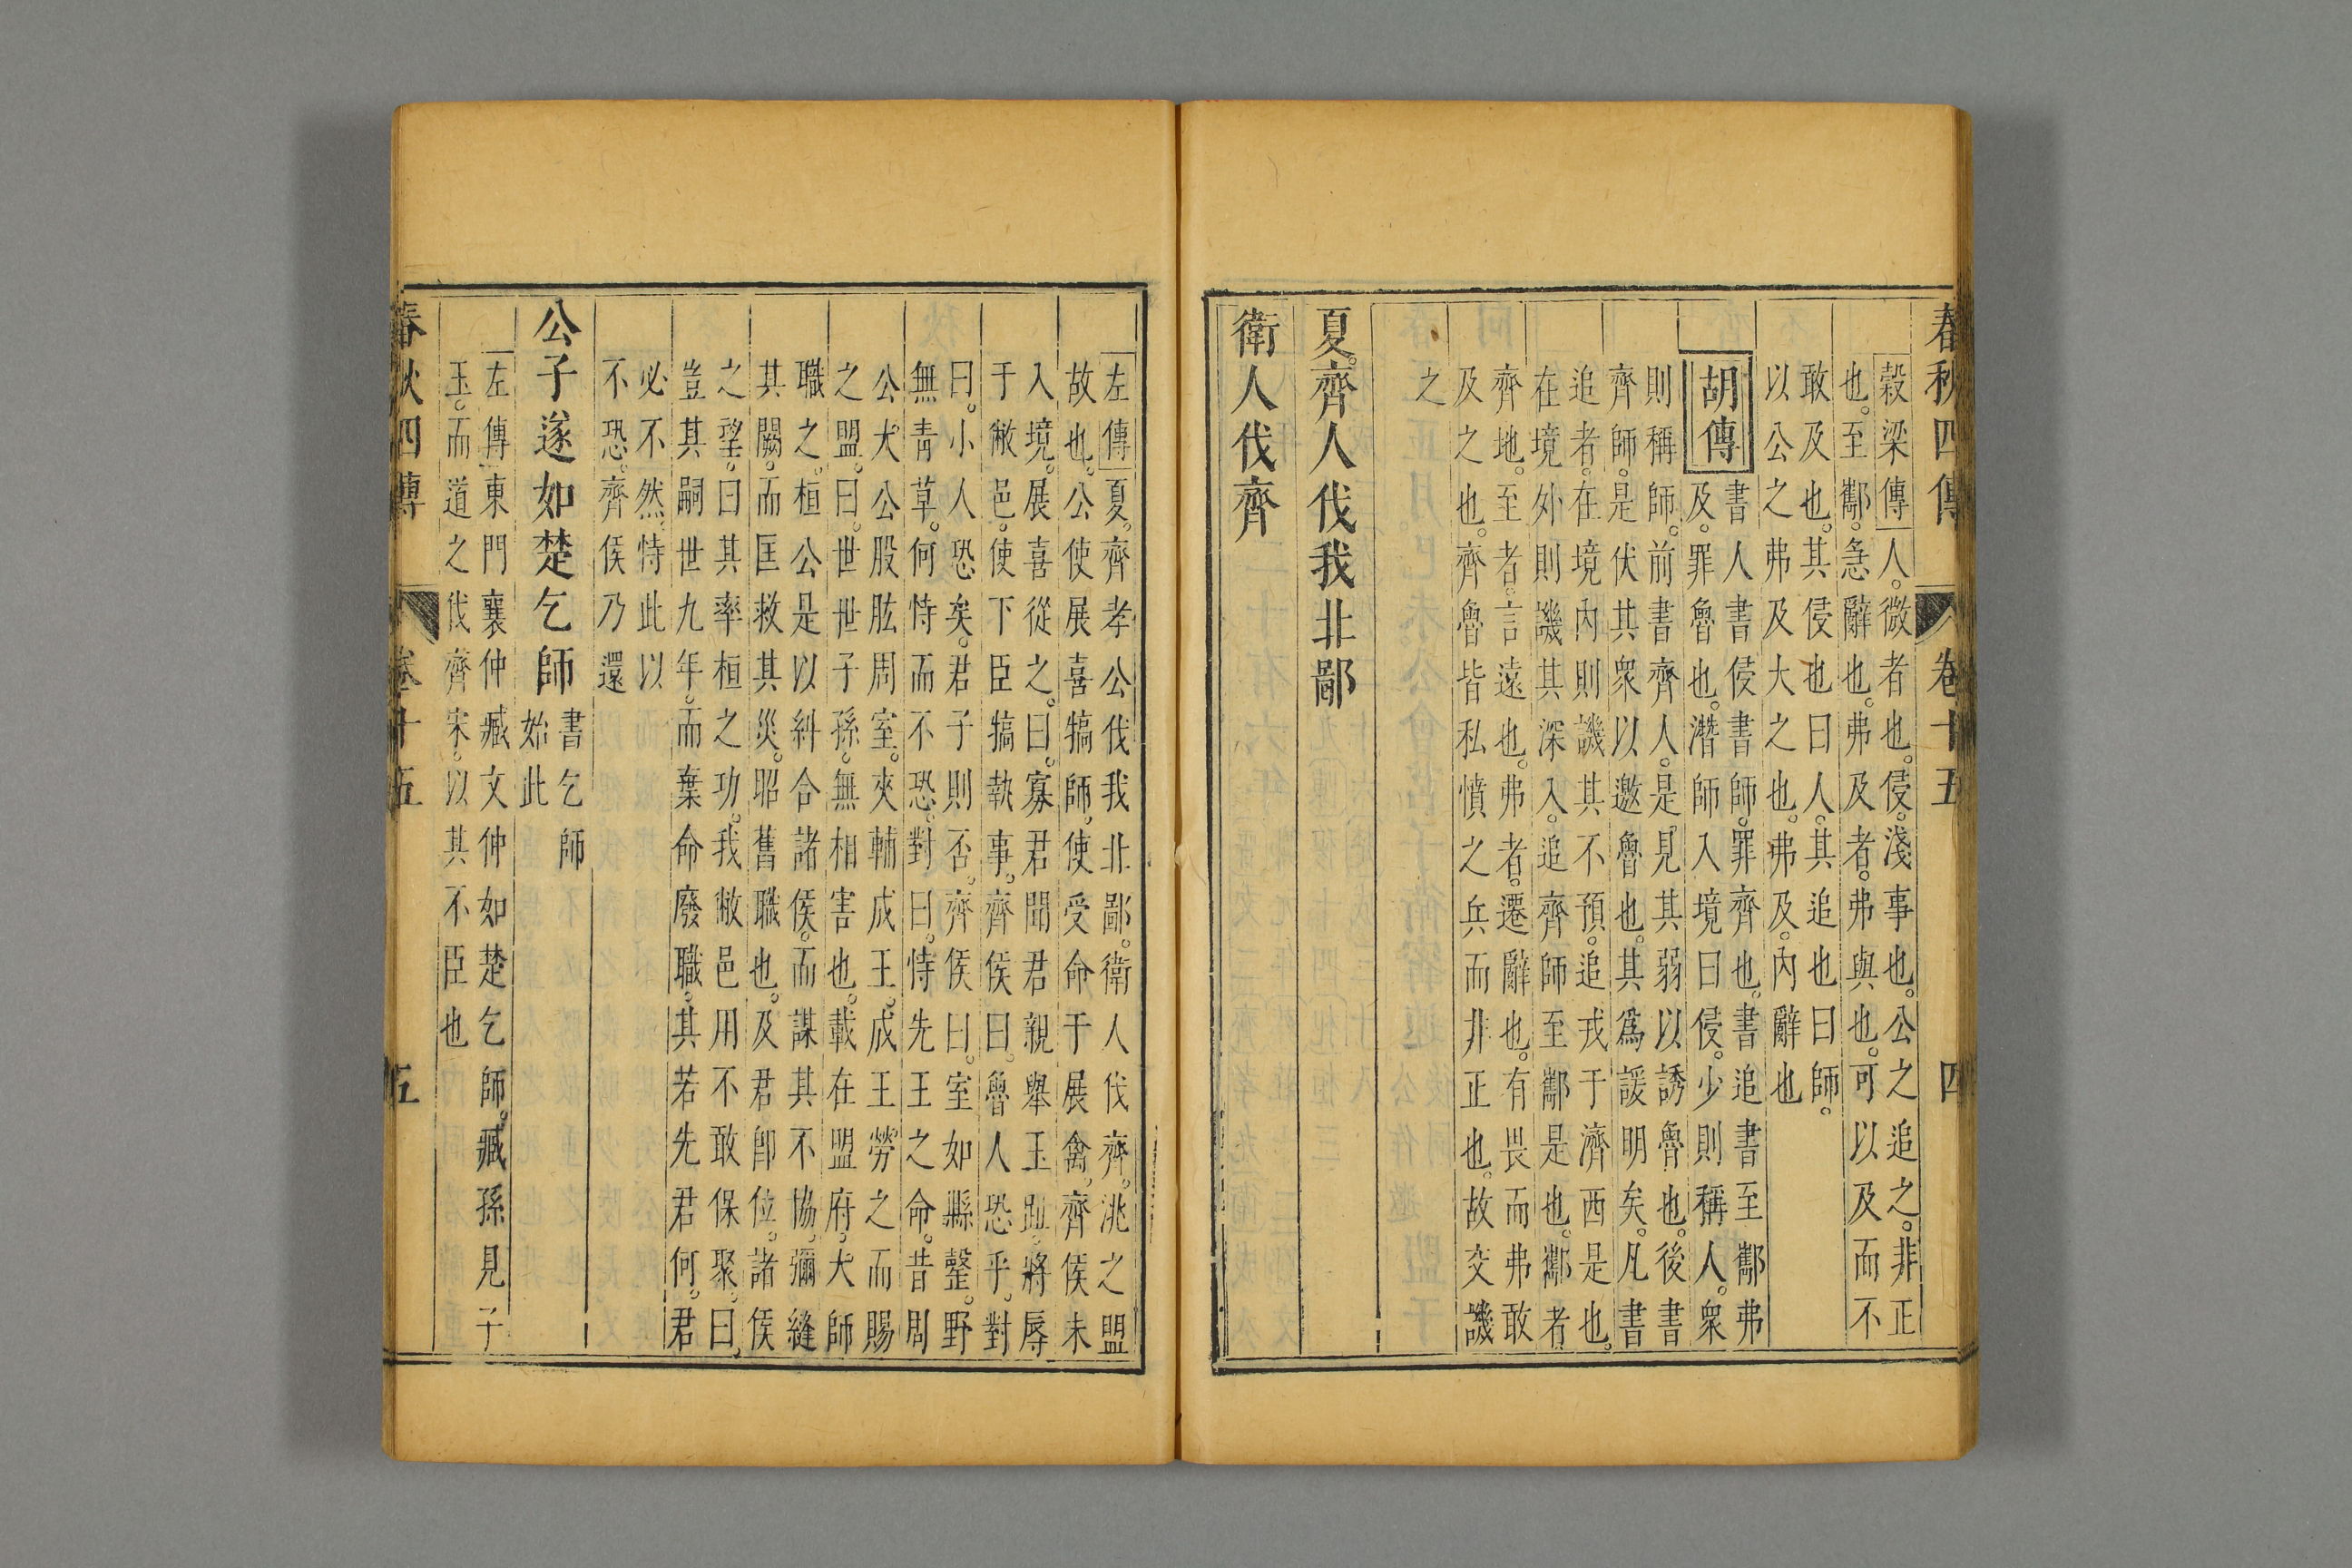 春秋四傳 卷十五 四
穀梁傳人。微者也。侵。淺事也。公之追之。非正
也。至酅。急辭也。弗及者。弗與也。可以及而不
敢及也。其侵也曰人。其追也曰師。
以公之弗及大之也。弗及。內辭也
胡傳書人書侵書師。罪齊也。書追書至酅弗
及。罪魯也。潛師入境曰侵。少則稱人。衆
則稱師。前書齊人。是見其弱以誘魯也。後書
齊師。是伏其衆以邀魯也。其爲諼明矣。凡書
追者。在境內則譏其不預。追戎于濟西是也。
在境外則譏其深入。追齊師至酅是也。酅者
齊地。至者。言遠也。弗者。遷辭也。有畏而弗敢
及之也。齊魯皆私憤之兵而非正也。故交譏
之
夏。齊人伐我北鄙
衛人伐齊
左傳夏。齊孝公伐我北鄙。衛人伐齊。洮之盟
故也。公使展喜犒師。使受命于展禽。齊侯未
入境。展喜從之。曰。寡君聞君親舉玉趾。將辱
于敝邑。使下臣犒執事。齊侯曰。魯人恐乎。對
曰。小人恐矣。君子則否。齊侯曰。室如縣罄。野
無青草。何恃而不恐。對曰。恃先王之命。昔周
公大公股肱周室。夾輔成王。成王勞之而賜
之盟。曰。世世子孫。無相害也。載在盟府。大師
職之。桓公是以糾合諸侯。而謀其不協。彌縫
其闕。而匡救其災。昭舊職也。及君卽位。諸侯
之望。曰其率桓之功。我敝邑用不敢保聚。曰。
豈其嗣世九年。而棄命廢職。其若先君何。君
必不然。恃此以
不恐。齊侯乃還
公子遂如楚乞師書乞師
始此
左傳東門襄仲臧文仲如楚乞師。臧孫見子
玉。而道之伐齊宋。以其不臣也
春秋四傳 卷十五 五